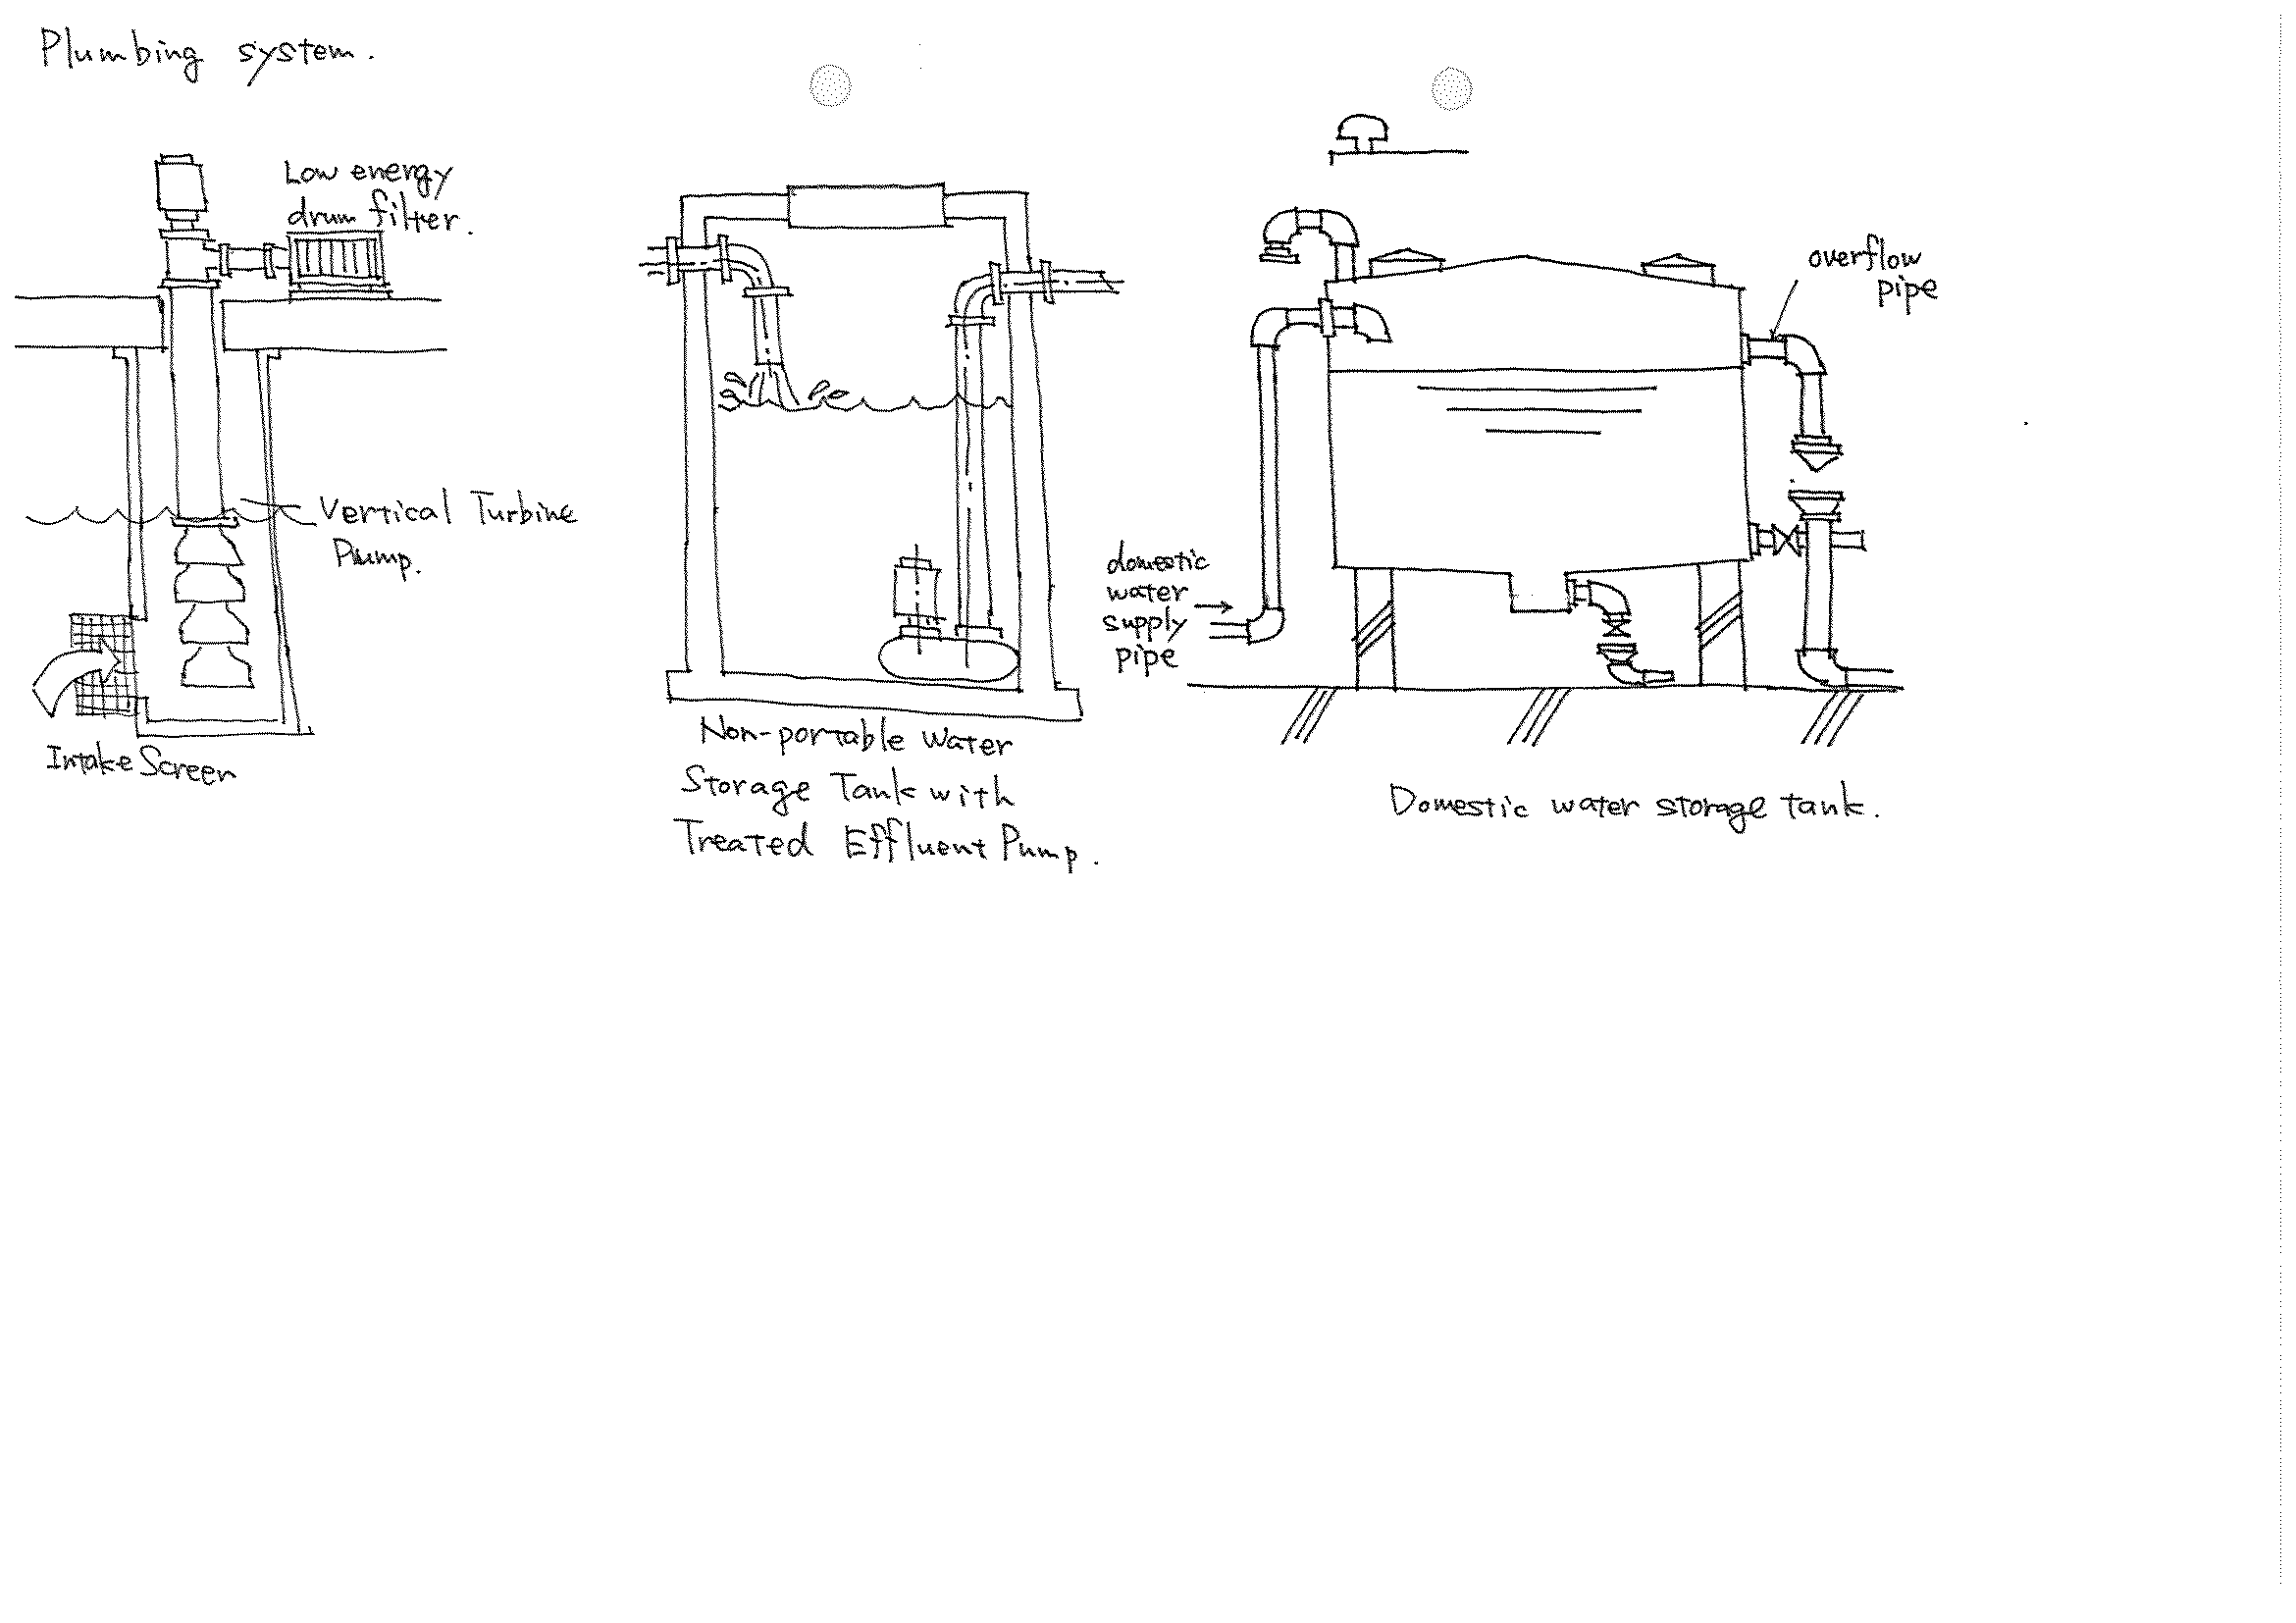 Plumbing system.
Low energy
drum filter.
Vertical Turbine
Pump.
Intake Screen
Non-portable Water
Storage Tank with
Treated Effluent Pump.
domestic
water
supply
pipe
overflow
pipe
Domestic water storage tank.